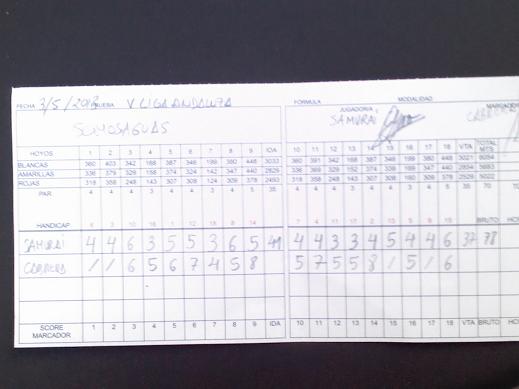 FECHA 3/5/2013 PRUEBA V LIGA ANDALUZA FORMULA MODALIDAD
SOMOSAGUAS JUGADOR/A: SAMURAI MARCADOR
HOYOS 1 2 3 4 5 6 7 8 9 IDA 10 11 12 13 14 15 16 17 18 VTA TOTAL MTS
BLANCAS 360 403 342 168 387 346 199 380 448 3033 360 391 342 168 387 346 199 380 448 3021 6054
AMARILLAS 336 379 329 158 374 324 142 347 440 2829 336 369 329 152 374 339 169 347 440 2854 5683
ROJAS 318 358 248 143 307 308 124 309 378 2493 318 358 248 143 307 308 160 309 378 2529 5022
PAR 4 4 4 3 4 4 3 4 5 35 4 4 4 3 4 4 3 4 5 35 70
HANDICAP 3 10 16 1 12 18 8 14 7 4 11 17 2 13 5 9 15 BRUTO
SAMURAI 4 4 6 3 5 5 3 6 5 41 4 4 3 3 4 5 4 4 6 37 78
/ / 6 5 6 7 4 5 8 5 7 5 5 8 / 5 / 6
SCORE MARCADOR 1 2 3 4 5 6 7 8 9 IDA 10 11 12 13 14 15 16 17 18 VTA BRUTO